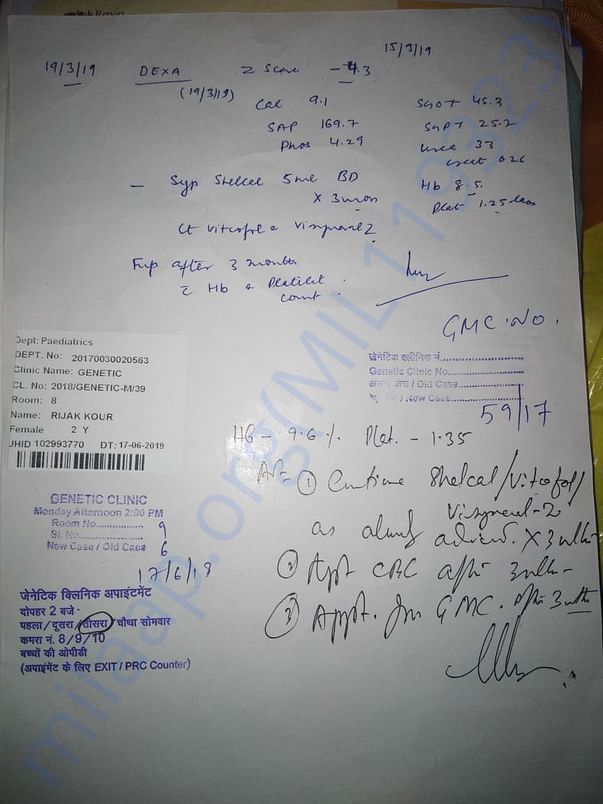 15/3/19
19/3/19 DEXA Z Score -4.3
(19/3/19)
Cal 9.1 SGOT 45.3
SAP 169.7 SGPT 25.2
Phos 4.29 Urea 33
creat 0.26
- Syp Shelcal 5ml BD Hb 8.5
X 3 mon Plat 1.25
Ct Vitcofol & Visyneral Z
Fup after 3 months
c̄ Hb & Platelet
count.
GMC. NO.
Dept: Paediatrics
DEPT. No: 20170030020563
Clinic Name: GENETIC
CL. No: 2018/GENETIC-M/39
Room: 8
Name: RIJAK KOUR
Female 2 Y
UHID 102993770 DT: 17-06-2019
जेनेटिक क्लीनिक नं.
Genetic Clinic No.
/ Old Case
/ New Case
59/17
Hb - 9.6 % Plat. - 1.35
① Continue Shelcal/Vitcofol/
Visyneral-Z
as already advised. X 3
② CBC after 3
③ Appt. for GMC. after 3
GENETIC CLINIC
Monday Afternoon 2:00 PM
Room No. 9
Sl. No. 6
New Case / Old Case
17/6/19
जेनेटिक क्लिनिक अपाइंटमेंट
दोपहर 2 बजे
पहला/दूसरा/तीसरा/चौथा सोमवार
कमरा नं. 8/9/10
बच्चों की ओपीडी
(अपाइंमेंट के लिए EXIT / PRC Counter)